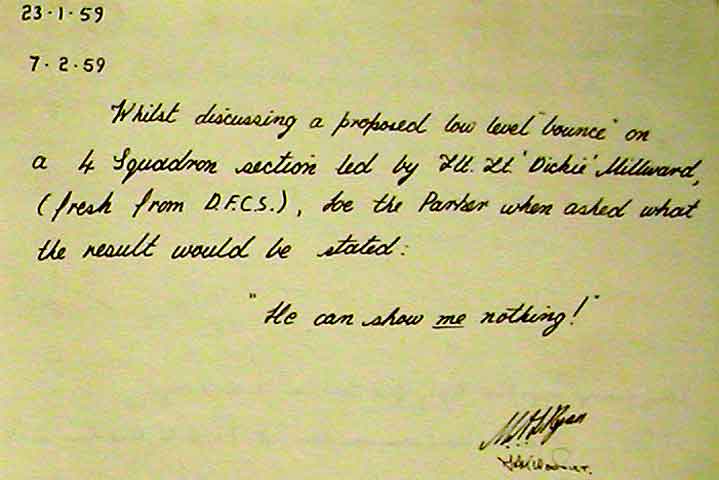 23·1·59
7·2·59
Whilst discussing a proposed low level "bounce" on
a 4 Squadron section led by Flt. Lt 'Dickie' Millward,
(fresh from D.F.C.S.), Joe the Parker when asked what
the result would be stated:
"He can show me nothing!"